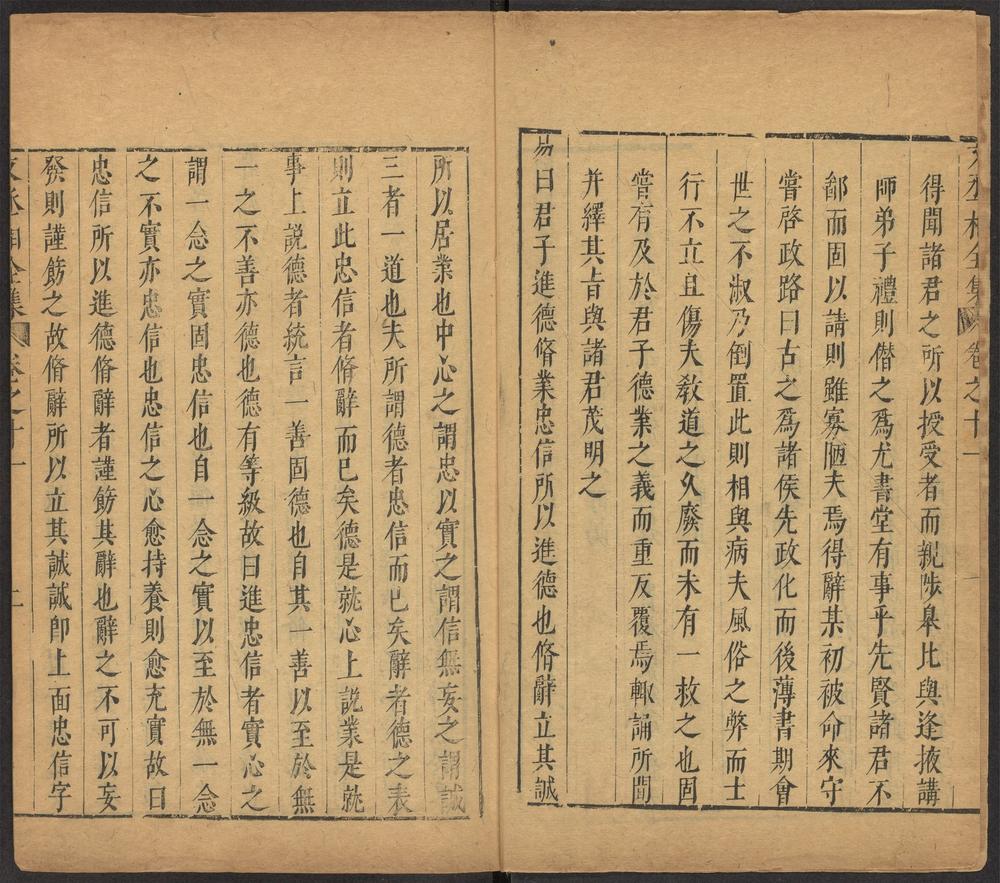 文丞相全集 卷之十一
得聞諸君之所以授受者而親陟皐比與逢掖講
師弟子禮則僣之爲尤書堂有事乎先賢諸君不
鄙而固以請則雖寡陋夫焉得辭某初被命來守
嘗啓政路曰古之爲諸侯先政化而後薄書期會
世之不淑乃倒置此則相與病夫風俗之弊而士
行不立且傷夫敎道之久廢而未有一救之也固
嘗有及於君子德業之義而重反覆焉輙誦所聞
并繹其旨與諸君茂明之
易曰君子進德脩業忠信所以進德也脩辭立其誠
所以居業也中心之謂忠以實之謂信無妄之謂誠
三者一道也夫所謂德者忠信而已矣辭者德之表
則立此忠信者脩辭而已矣德是就心上說業是就
事上說德者統言一善固德也自其一善以至於無
一之不善亦德也德有等級故曰進忠信者實心之
謂一念之實固忠信也自一念之實以至於無一念
之不實亦忠信也忠信之心愈持養則愈充實故曰
忠信所以進德脩辭者謹飭其辭也辭之不可以妄
發則謹飭之故脩辭所以立其誠誠卽上面忠信字
文丞相全集 卷之十一 二